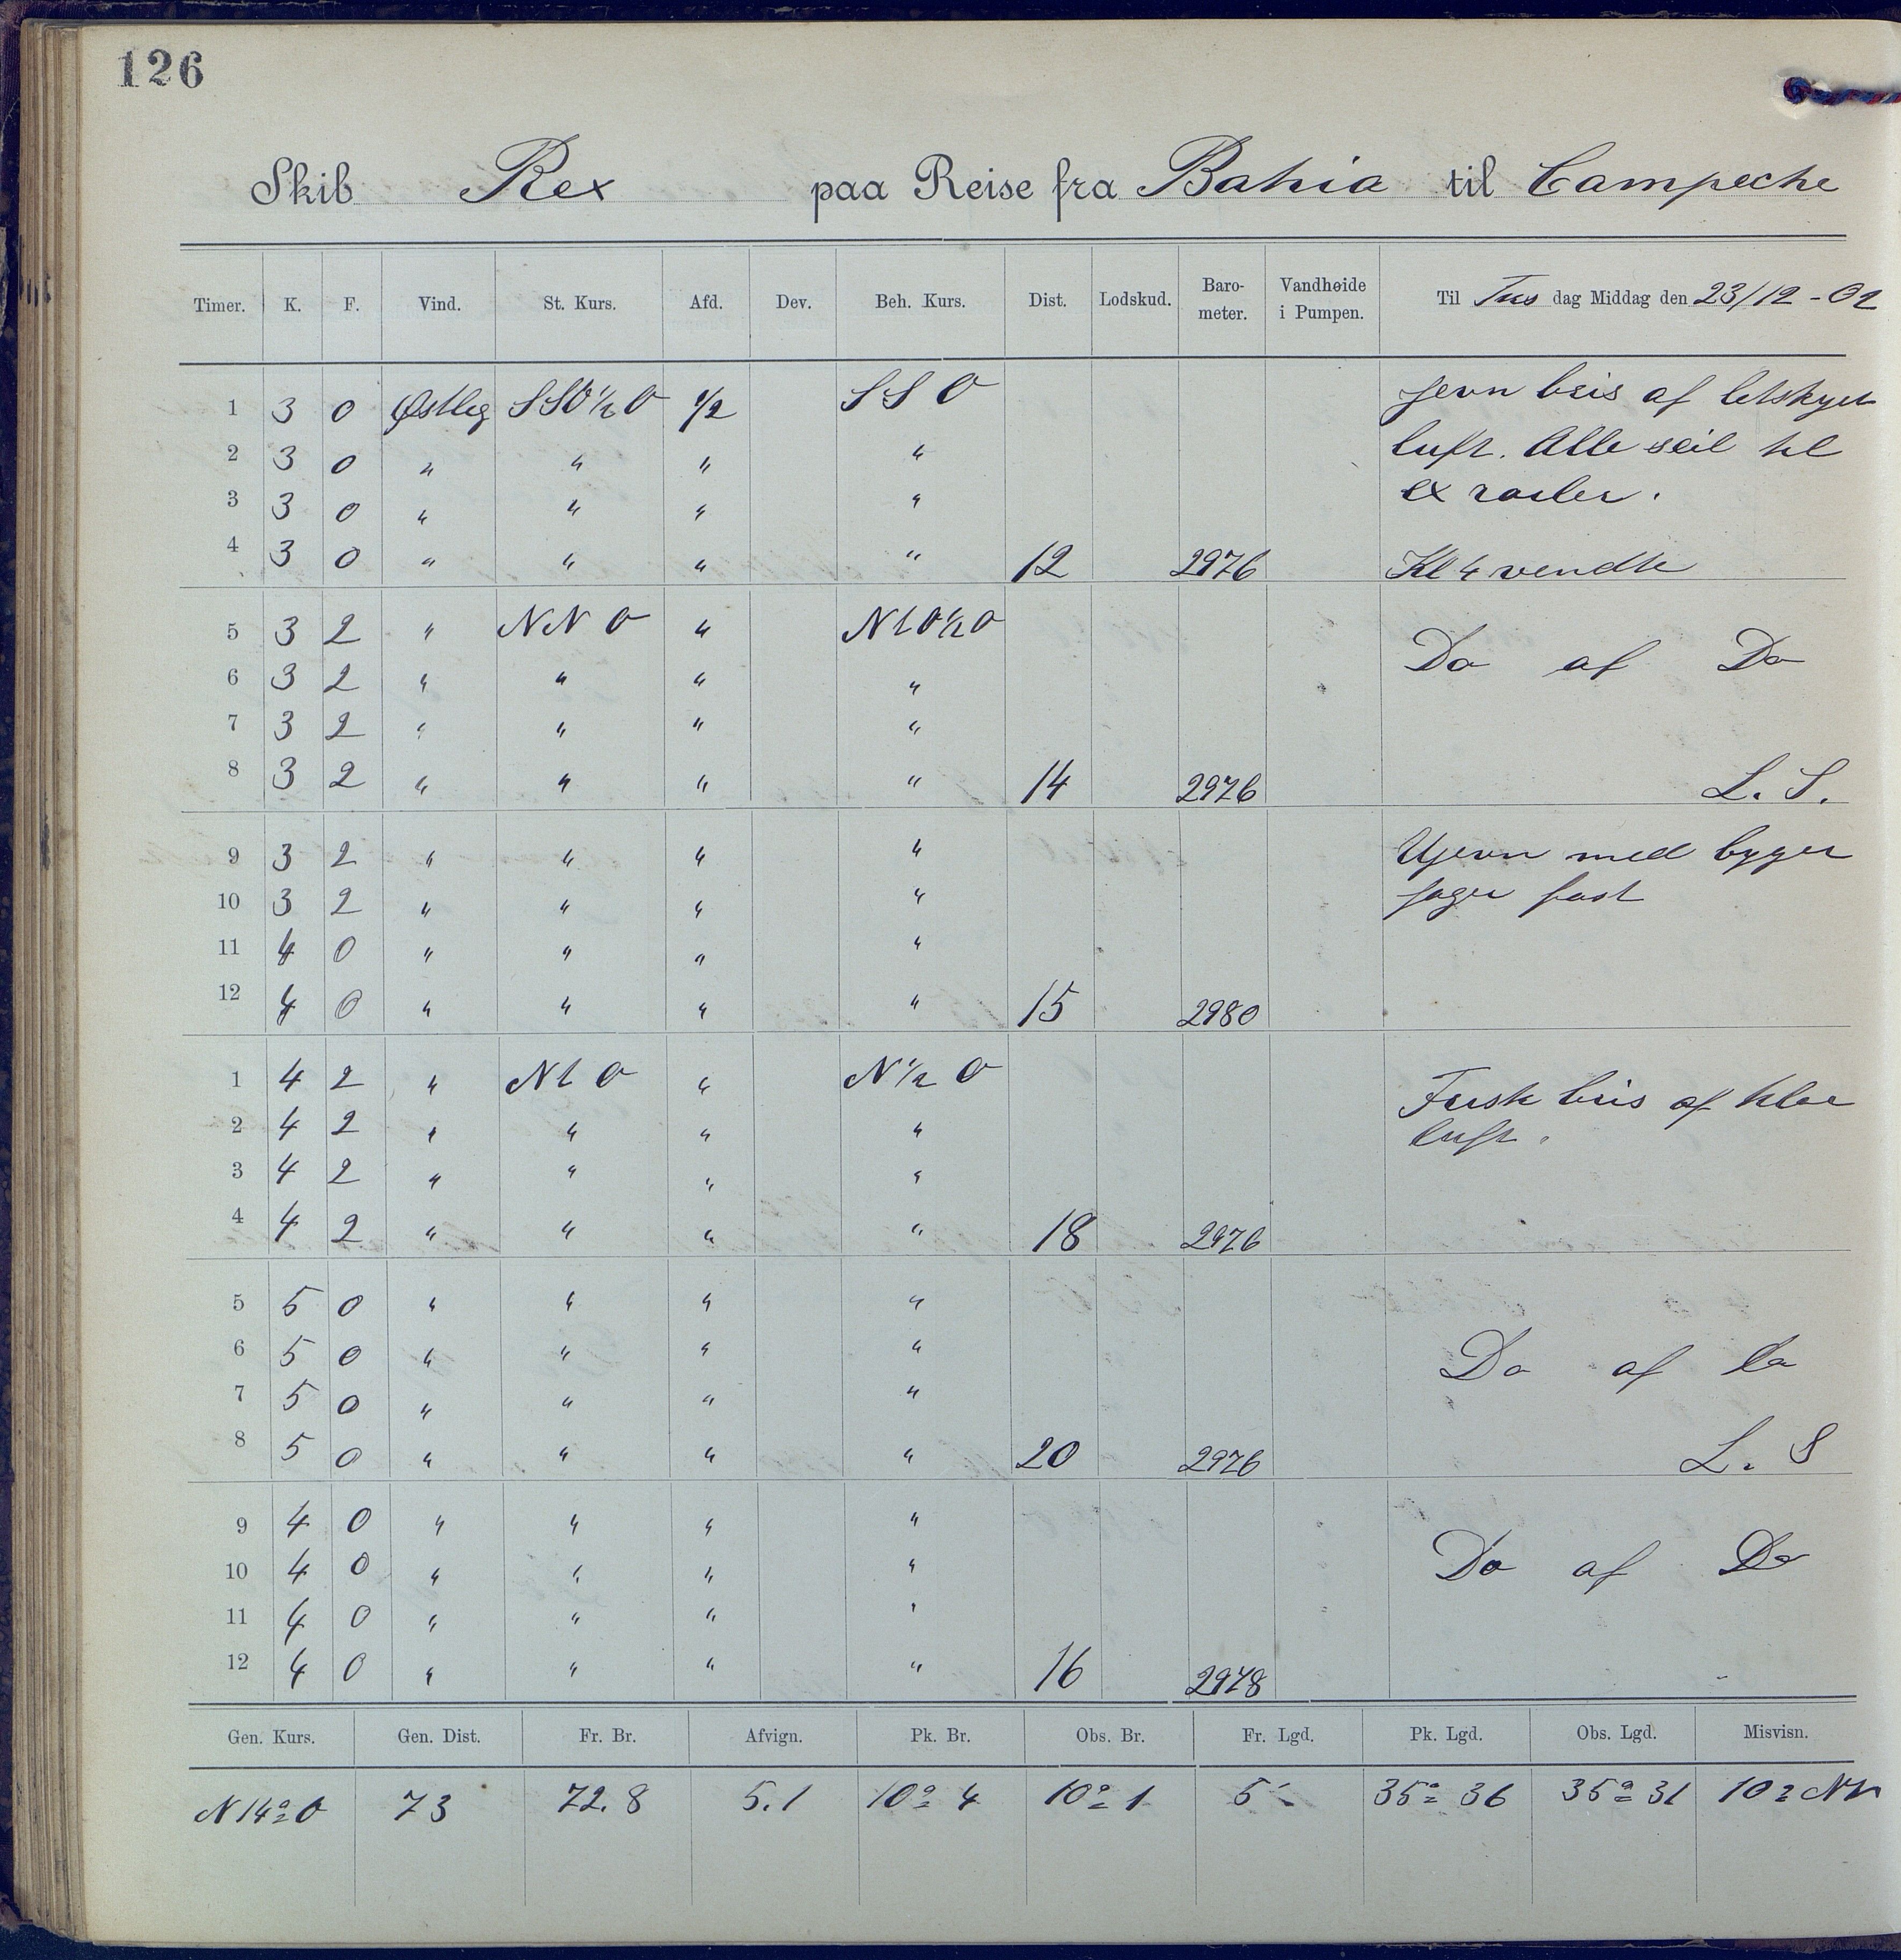 126
Skib Rex paa Reise fra Bahia til Campeche
Timer. K. F. Vind. St. Kurs. Afd. Dev. Beh. Kurs. Dist. Lodskud. Barometer. Vandhøide i Pumpen. Til Tirs dag Middag den 23/12-02
1 3 0 Østlig SSO½O ½ SSO Jevn bris af letskyet
2 3 0 " " " " luft. Alle seil til
3 3 0 " " " "
4 3 0 " " " " 12 2976 Kl 4 vendte
5 3 2 " NNO " NtO½O
Do af Do
6 3 2 " " " "
7 3 2 " " " "
8 3 2 " " " " 14 2976 L. S.
9 3 2 " " " " Ujevn med byger
10 3 2 " " " "
11 4 0 " " " "
12 4 0 " " " " 15 2980
1 4 2 " NtO " N½O Frisk bris af klar
2 4 2 " " " " luft.
3 4 2 " " " "
4 4 2 " " " " 18 2976
5 5 0 " " " "
6 5 0 " " " " Do af Do
7 5 0 " " " "
8 5 0 " " " " 20 2976 L. S
9 4 0 " " " "
10 4 0 " " " " Do af Do
11 4 0 " " " "
12 4 0 " " " " 16 2978
Gen. Kurs. Gen. Dist. Fr. Br. Afvign. Pk. Br. Obs. Br. Fr. Lgd. Pk. Lgd. Obs. Lgd. Misvisn.
N 14° O 73 72.8 5.1 10° 4 10° 1 5' 35° 36 35° 31 10°